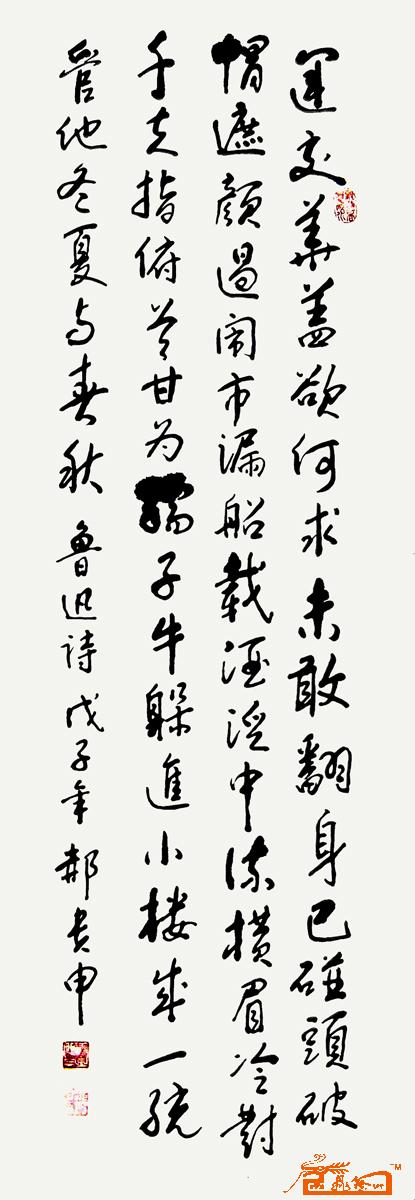 運交華蓋欲何求未敢翻身已碰頭破
帽遮顏過闹市漏船載酒泛中流橫眉冷對
千夫指俯首甘为孺子牛躲進小樓成一統
管他冬夏与春秋 魯迅詩 戊子年 郝贵申